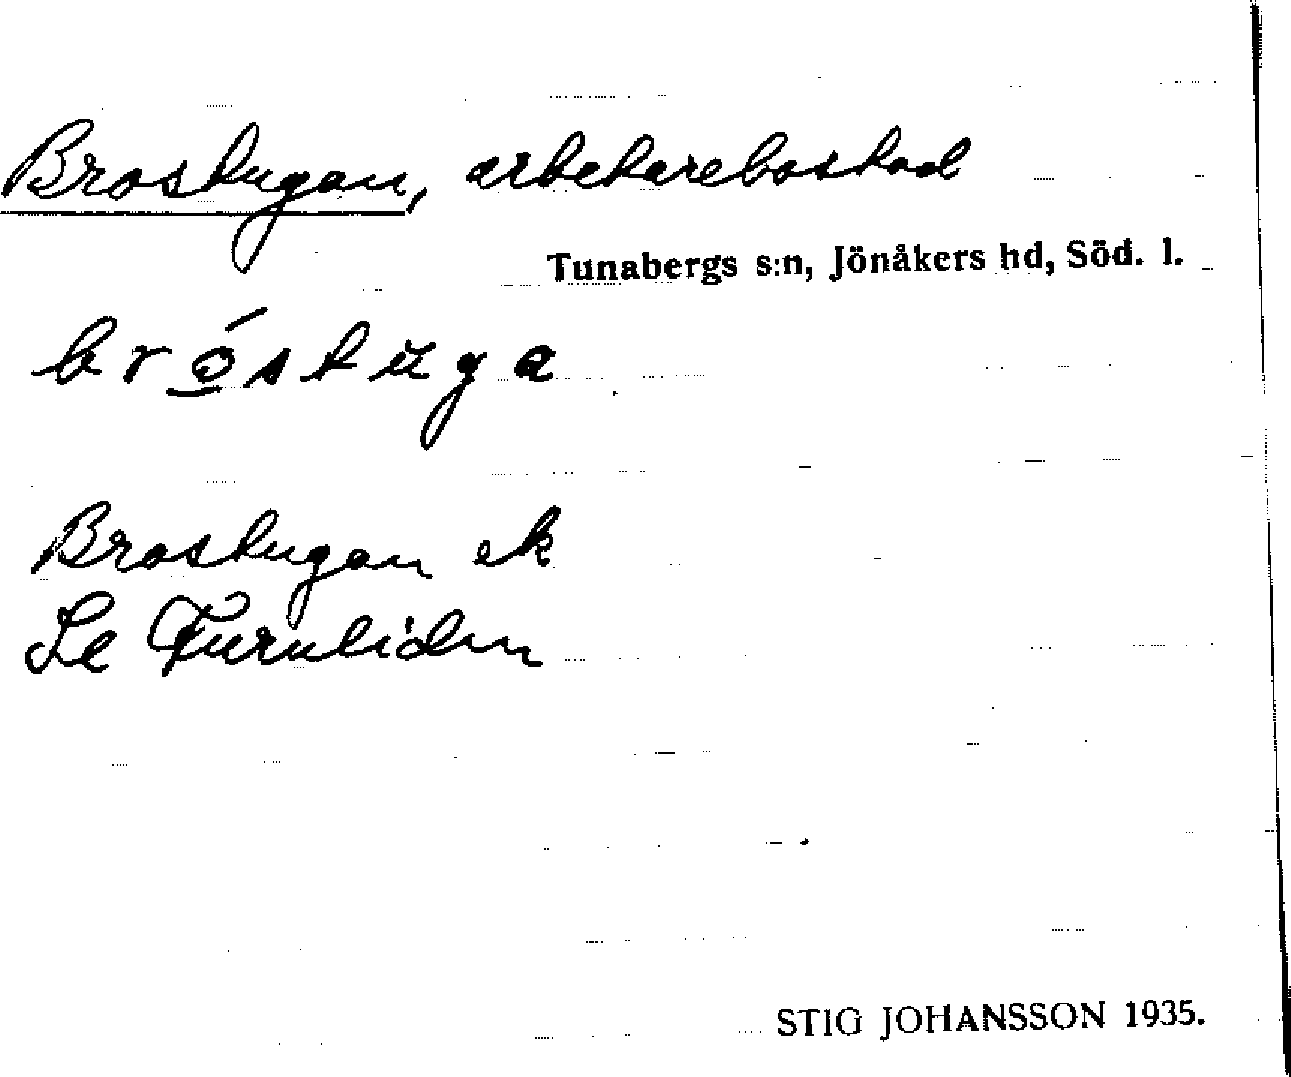 Brostugan, arbetarebostad
Tunabergs s:n, Jönåkers hd, Söd. l.
bró̲stŭga
Brostugan ek
Se Furuliden
STIG JOHANSSON 1935.